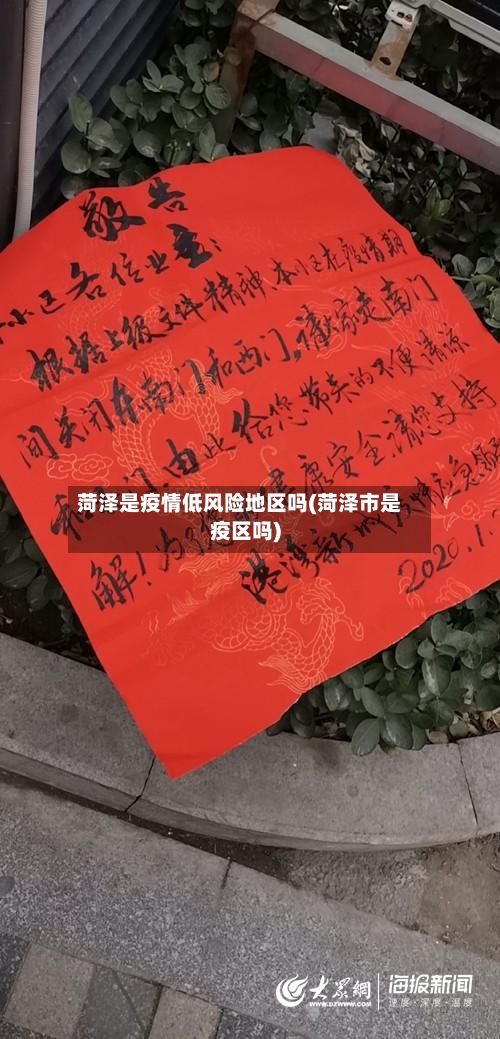 敬告
小区各位业主:
根据上级文件精神,本小区在疫情期
间关闭东南门和西门,请大家走南门
由此给您带来的不便请谅
解!为了 健康安全请您支持
港湾新城
2020.1.
菏泽是疫情低风险地区吗(菏泽市是
疫区吗)
大眾網
WWW.DZWWW.COM
海报新闻
速度·深度·温度